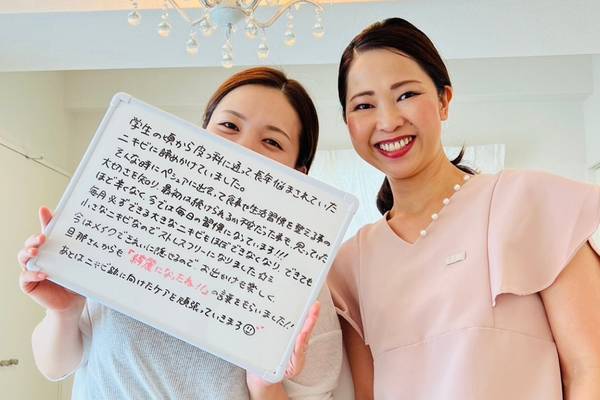 学生の頃から皮フ科に通って長年悩まされていた
ニキビに諦めかけていました。
そんな時にペシュアに出会って食事や生活習慣を整える事の
大切さを知り、最初は続けられるか不安だった事も、思っていた
ほど辛くなく、今では毎日の習慣になっています!!!
毎月必ずできる大きなニキビもほぼできなくなり、できても
小さなニキビなのでストレスフリーになりました☆彡
今はメイクできれいに隠せるので お出かけも楽しく、
旦那さんからも「綺麗になったね!!」の言葉をもらいました!!
あとはニキビ跡に向けたケアを頑張っていきまーす☺